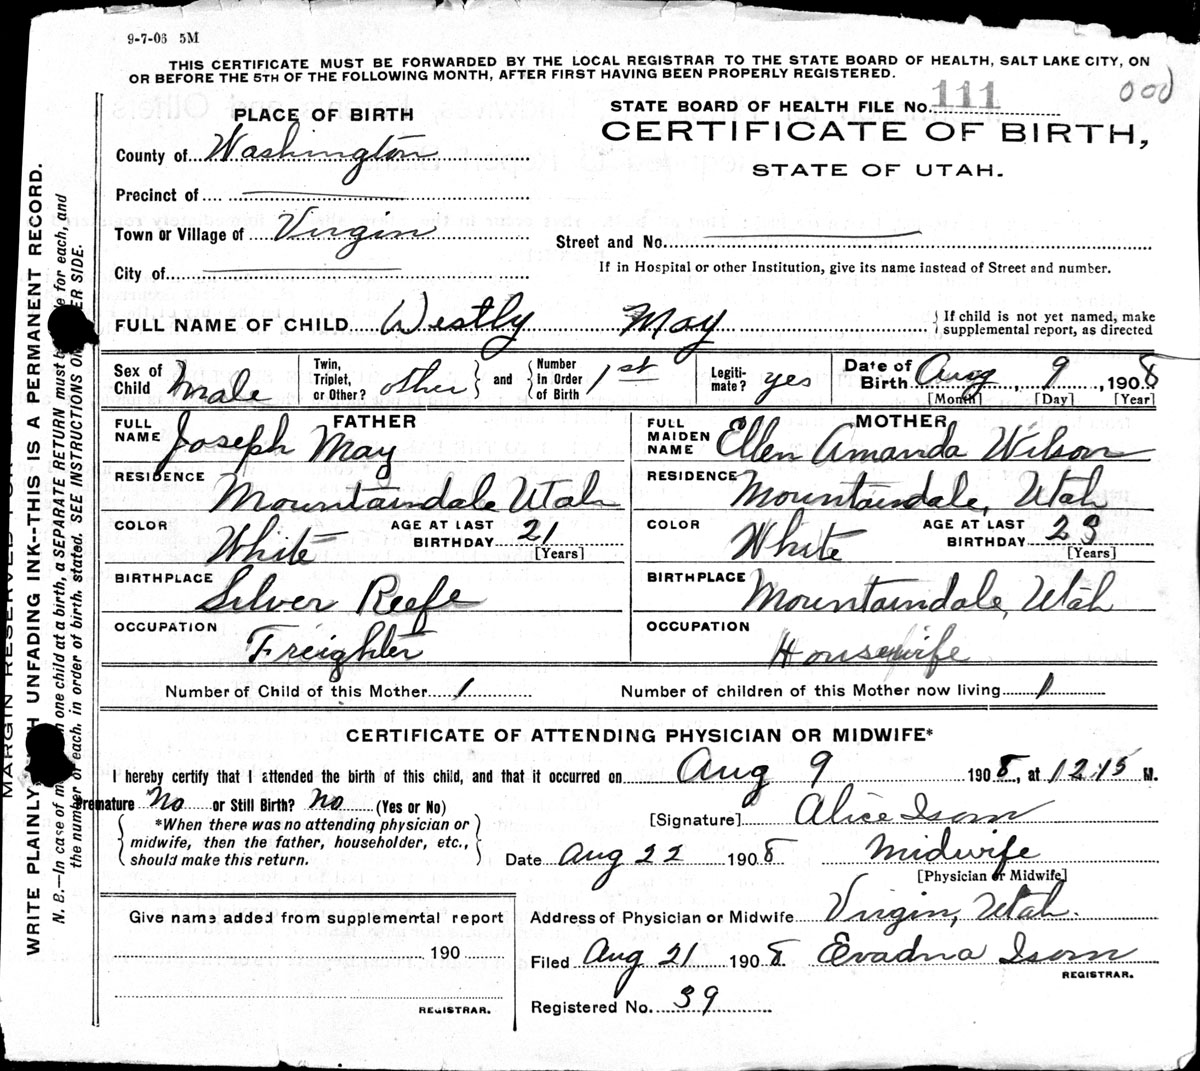 9-7-06 5M
THIS CERTIFICATE MUST BE FORWARDED BY THE LOCAL REGISTRAR TO THE STATE BOARD OF HEALTH, SALT LAKE CITY, ON
OR BEFORE THE 5TH OF THE FOLLOWING MONTH, AFTER FIRST HAVING BEEN PROPERLY REGISTERED.
000
STATE BOARD OF HEALTH FILE NO. 111
CERTIFICATE OF BIRTH,
STATE OF UTAH.
PLACE OF BIRTH
County of Washington
Precinct of
Town or Village of Virgin
City of
Street and No.
If in Hospital or other Institution, give its name instead of Street and number.
FULL NAME OF CHILD Westly May
If child is not yet named, make
supplemental report, as directed
Sex of Child Male
Twin, Triplet, or Other? other and Number in Order of Birth 1st
Legitimate? yes
Date of Birth Aug 9, 1908
[Month] [Day] [Year]
FATHER
FULL NAME Joseph May
RESIDENCE Mountaindale Utah
COLOR White AGE AT LAST BIRTHDAY 21 [Years]
BIRTHPLACE Silver Reefe
OCCUPATION Freighter
MOTHER
FULL MAIDEN NAME Ellen Amanda Wilson
RESIDENCE Mountaindale, Utah
COLOR White AGE AT LAST BIRTHDAY 23 [Years]
BIRTHPLACE Mountaindale, Utah
OCCUPATION Housewife
Number of Child of this Mother 1 Number of children of this Mother now living 1
CERTIFICATE OF ATTENDING PHYSICIAN OR MIDWIFE*
I hereby certify that I attended the birth of this child, and that it occurred on Aug 9 1908, at 12.15 M.
Premature No or Still Birth? No (Yes or No)
*When there was no attending physician or
midwife, then the father, householder, etc.,
should make this return.
[Signature] Alice Isom
Date Aug 22 1908 Midwife
[Physician or Midwife]
Give name added from supplemental report
190
REGISTRAR.
Address of Physician or Midwife Virgin, Utah.
Filed Aug 21 1908 Evadna Isom
REGISTRAR.
Registered No. 39
MARGIN RESERVED FOR
WRITE PLAINLY UNFADING INK--THIS IS A PERMANENT RECORD.
N. B.—In case of one child at a birth, a SEPARATE RETURN must for each, and
the number of each, in order of birth, stated. SEE INSTRUCTIONS ON SIDE.